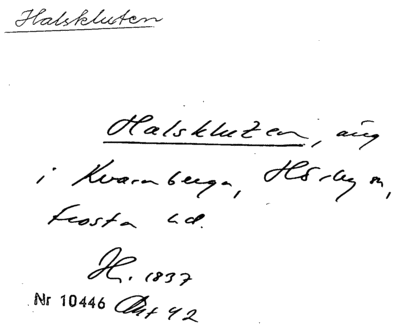 Halskluten
Halskluten, äng
i Kvarnberga, Hörby sn,
Frosta hd.
H. 1837
Nr 10446 Akt 42